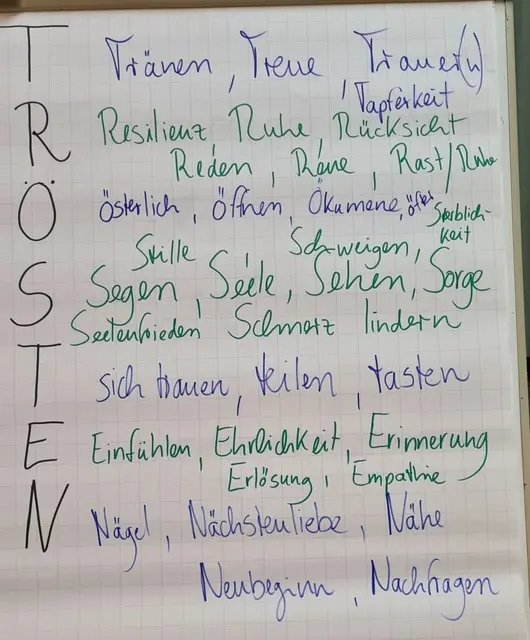 T Tränen, Treue, Trauer(n)
, Tapferkeit
R Resilienz, Ruhe, Rücksicht
Reden, Reue, Rast/Ruhe
Ö Österlich, Öffnen, Ökumene, öfter
Sterblich-
keit
Stille, Schweigen,
S Segen, Seele, Sehen, Sorge
Seelenfrieden Schmerz lindern
T sich trauen, teilen, tasten
E Einfühlen, Ehrlichkeit, Erinnerung
Erlösung, Empathie
N Nägel, Nächstenliebe, Nähe
Neubeginn, Nachfragen